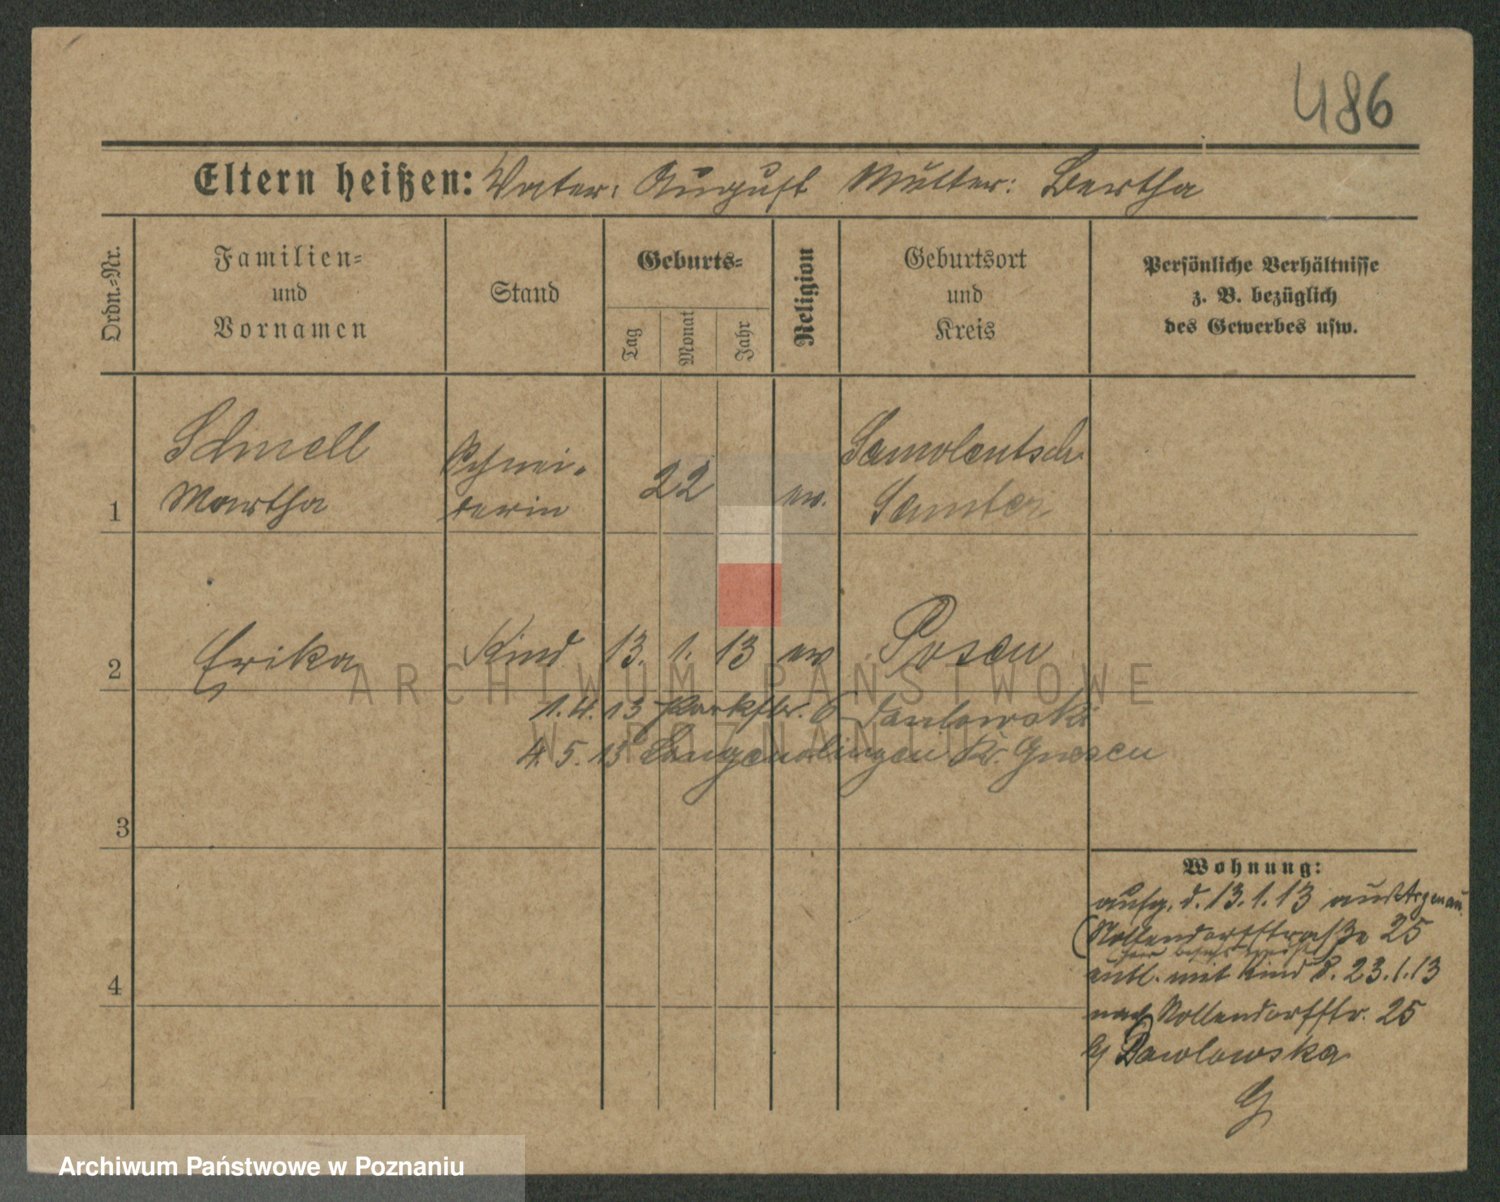 486
Eltern heißen: Vater: August Mutter: Bertha
Ordn.-Nr.
Familien-
und
Vornamen
Stand
Geburts-
Tag
Monat
Jahr
Religion
Geburtsort
und
Kreis
Persönliche Verhältnisse
z. B. bezüglich
des Gewerbes usw.
1
Schnell
Martha
Schnei-
derin
22
ev.
Samolentsch
Samter
2
Erika
Kind
13. 1. 13
ev
Posen
1.4.13 Parkstr. 6
4.5.13 Kr. Gnesen
3
4
Wohnung:
aufg. d. 13.1.13 aus Argenau
(Nollendorfstraße 25
entl. mit Kind d. 23.1.13
nach Nollendorfstr. 25
b/ Pawlowska
G
ARCHIWUM PAŃSTWOWE
W POZNANIU
Archiwum Państwowe w Poznaniu